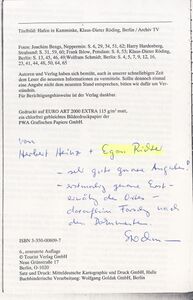 Titelbild: Hafen in Kamminke, Klaus-Dieter Röding, Berlin / Archiv TV
Fotos: Joachim Benga, Neppermin: S. 6, 29, 34, 51, 62; Harry Hardenberg,
Stralsund: S. 31, 59, 60; Frank Ihlow, Potsdam: S. 8, 53; Klaus-Dieter Röding,
Berlin: S. 13, 45, 46, 49; Wolfram Schmidt; Berlin: S. 4, 5, 7, 9, 12, 16,
23, 41, 44, 48, 50, 64, 65
Autoren und Verlag haben sich bemüht, auch in unserer schnellebigen Zeit
dem Leser die neuesten Informationen zu vermitteln. Sollte dennoch einmal
eine Angabe nicht dem neuesten Stand entsprechen, bitten wir dafür um Ver-
ständnis.
Für Berichtigungshinweise ist der Verlag dankbar.
Gedruckt auf EURO ART 2000 EXTRA 115 g/m² matt,
ein chlorfrei gebleichtes Bilderdruckpapier der
PWA Grafischen Papiere GmbH.
von
Herbert Heinz + Egon Richter
- sehr gute genaue Angaben!
der Orte -
ISBN 3-350-00809-7
6., erneuerte Auflage
© Tourist Verlag GmbH
Neue Grünstraße 17
Berlin, O-1020
Satz und Druck: Mitteldeutsche Kartographie und Druck GmbH, Halle
Buchbinderische Verarbeitung: Wolfgang Goldak GmbH, Berlin